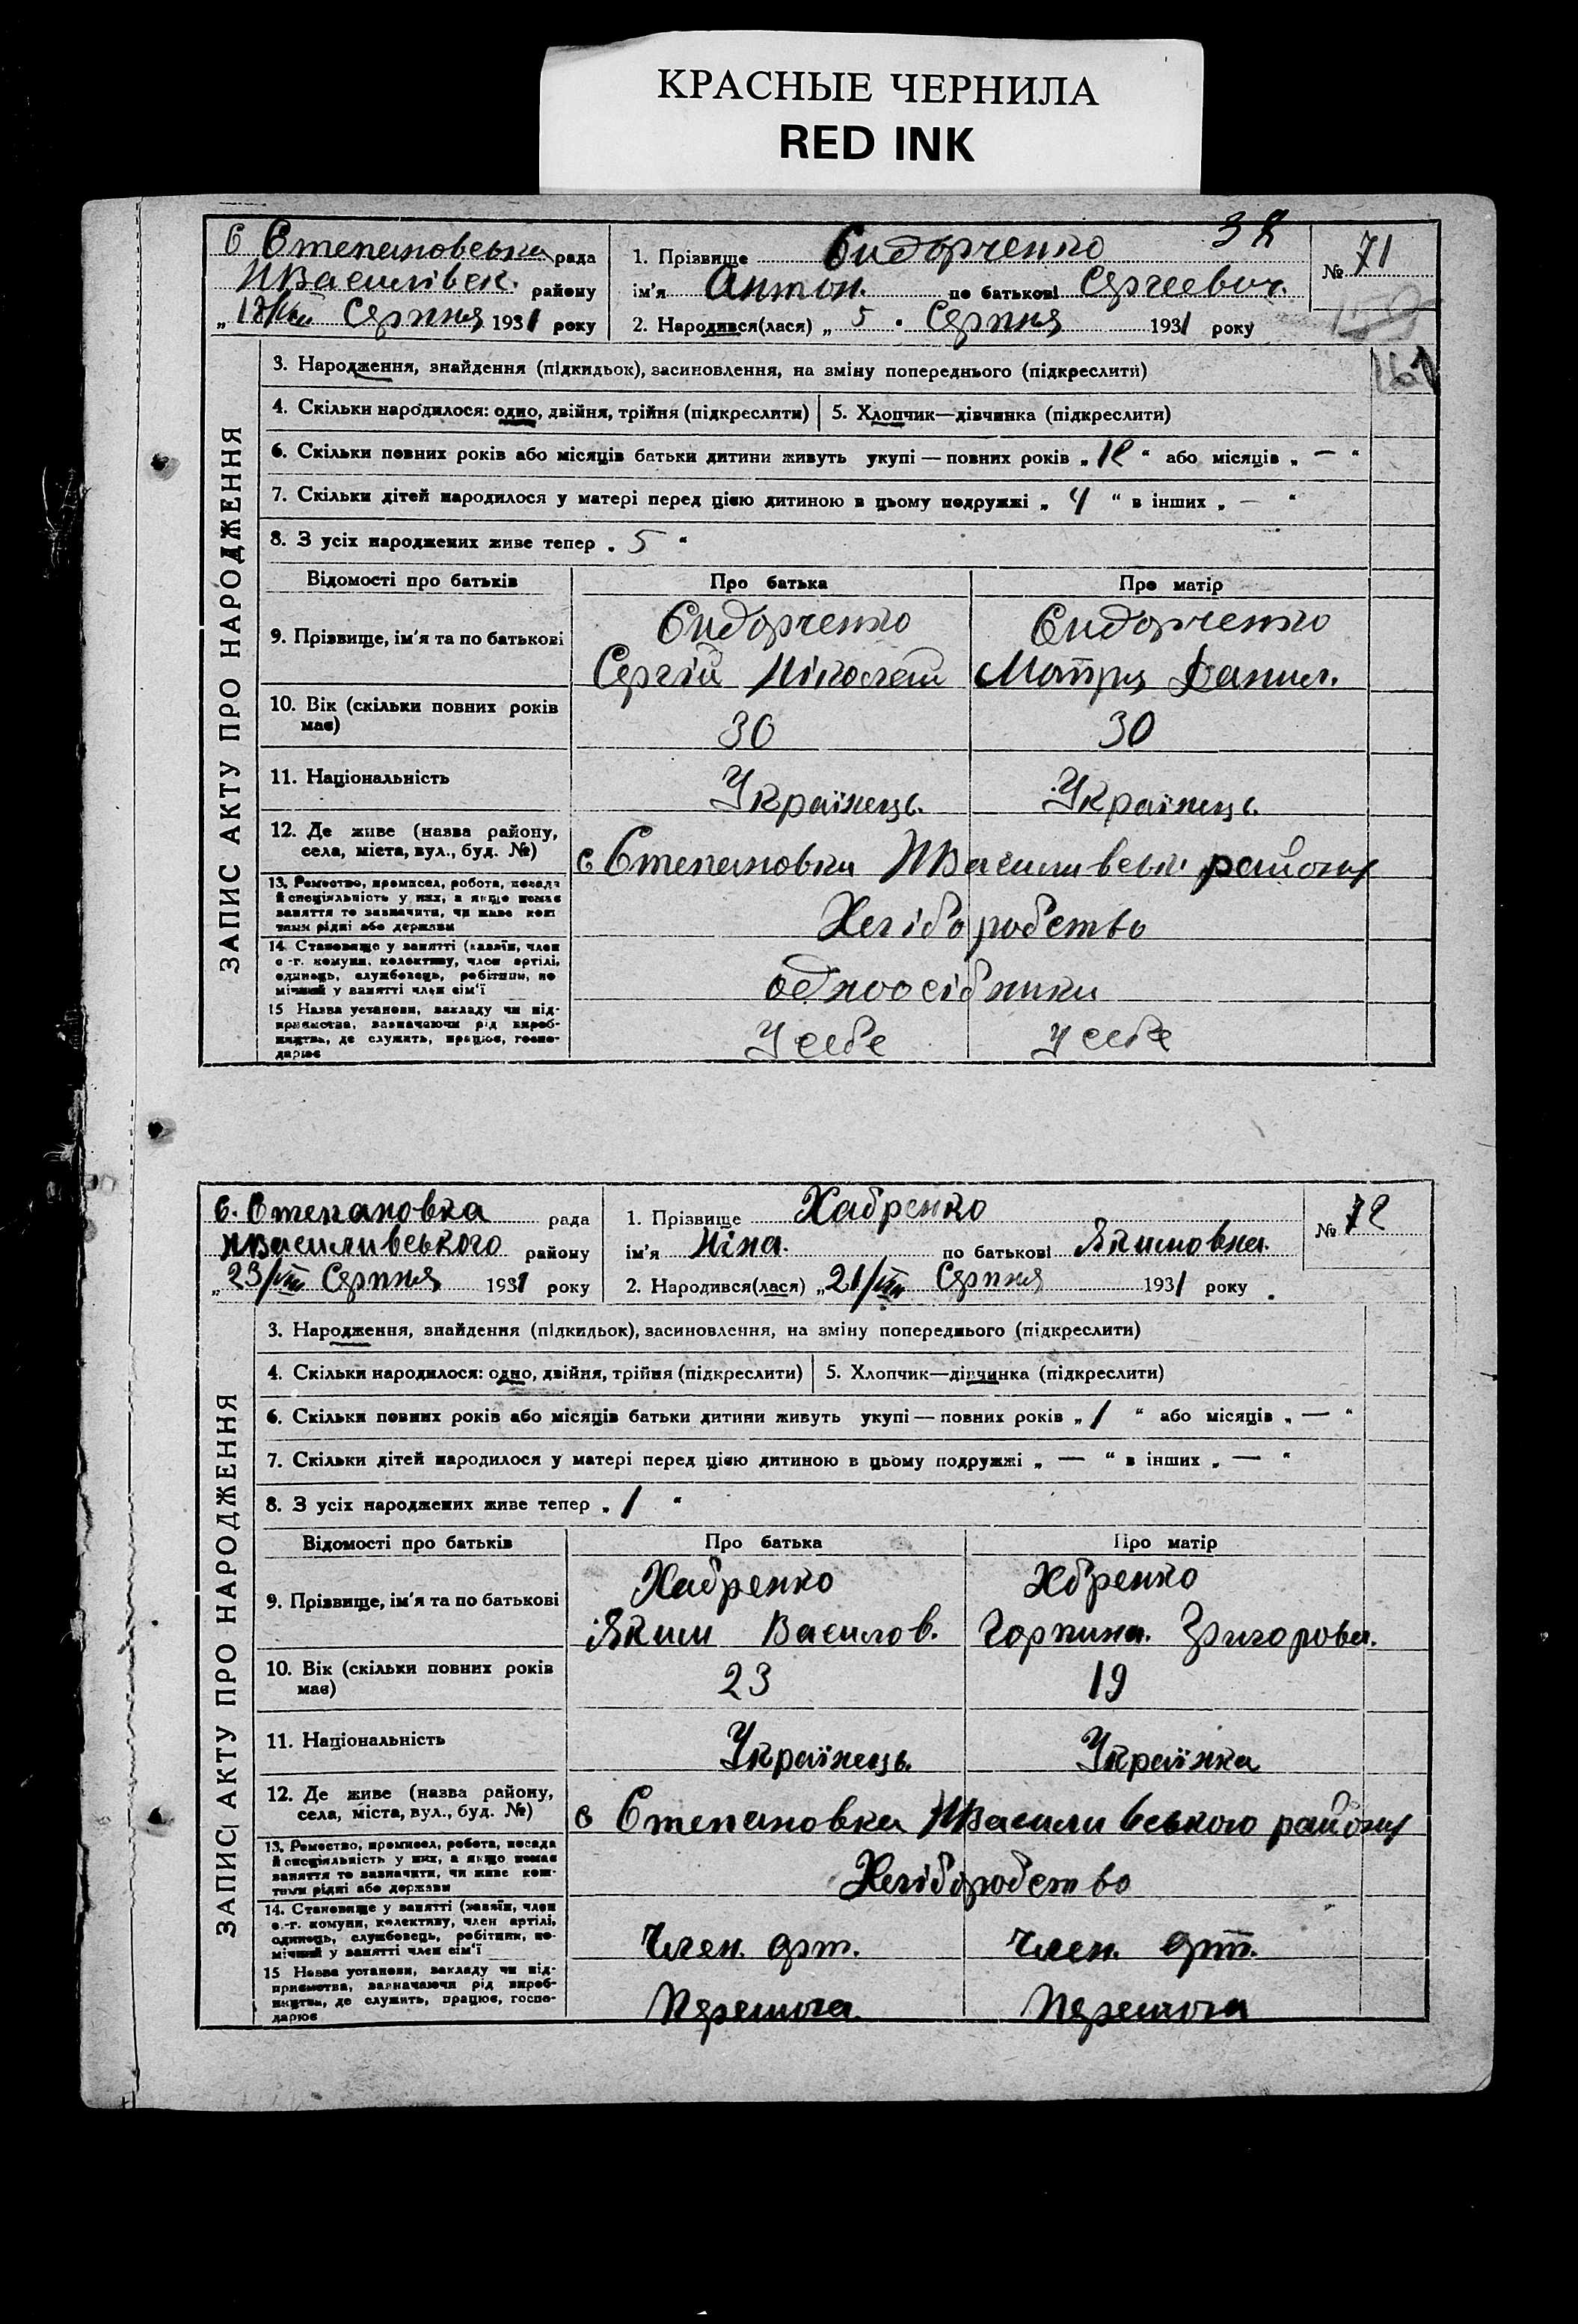 КРАСНЫЕ ЧЕРНИЛА
RED INK
38
С Степановська рада
НВасилівск. району
„ 18/VIII Серпня 1931 року
1. Прізвище Сидорченко
ім'я Антон. по батькові Сергеевич.
2. Народився(лася) „ 5 " Серпня 1931 року
№ 71
159
161
ЗАПИС АКТУ ПРО НАРОДЖЕННЯ
3. Народження, знайдення (підкидьок), засиновлення, на зміну попереднього (підкреслити)
4. Скільки народилося: одно, двійня, трійня (підкреслити) 5. Хлопчик—дівчинка (підкреслити)
6. Скільки повних років або місяців батьки дитини живуть укупі — повних років „ 12 " або місяців „ — "
7. Скільки дітей народилося у матері перед цією дитиною в цьому подружжі „ 4 " в інших „ — "
8. З усіх народжених живе тепер „ 5 "
Відомості про батьків Про батька Про матір
9. Прізвище, ім'я та по батькові
Сидорченко Сидорченко
Сергій Ніколаєв Мотря Данил.
10. Вік (скільки повних років
має)
30 30
11. Національність
Українець. Українець.
12. Де живе (назва району,
села, міста, вул., буд. №)
с Степановки НВасиливськ. району
13. Ремество, промисел, робота, посада
й спеціяльність у них, а якщо немає
заняття то зазначити, чи живе кош
тами рідні або держави
Хлібо робство
14 Становище у занятті (хазяїн, член
с.-г. комуни, колективу, член артілі,
одинець, службовець, робітник, по
мічний у занятті член сім'ї
одноосібники
15 Назва установи, закладу чи під-
приємства, зазначаючи рід вироб-
ництва, де служить, працює, госпо-
дарює
У себе у себе
С. Степановка рада
НВасиливського району
„ 23/VIII Серпня 1931 року
1. Прізвище Хабренко
ім'я Ніна. по батькові Якимовна.
2. Народився(лася) „ 21/VIII Серпня 1931 року
№ 72
ЗАПИС АКТУ ПРО НАРОДЖЕННЯ
3. Народження, знайдення (підкидьок), засиновлення, на зміну попереднього (підкреслити)
4. Скільки народилося: одно, двійня, трійня (підкреслити) 5. Хлопчик—дівчинка (підкреслити)
6. Скільки повних років або місяців батьки дитини живуть укупі — повних років „ 1 " або місяців „ — "
7. Скільки дітей народилося у матері перед цією дитиною в цьому подружжі „ — " в інших „ — "
8. З усіх народжених живе тепер „ 1 "
Відомості про батьків Про батька Про матір
9. Прізвище, ім'я та по батькові
Хабренко Хбренко
Яким Василов. Горпина. Григорова.
10. Вік (скільки повних років
має)
23 19
11. Національність
Українець. Українка
12. Де живе (назва району,
села, міста, вул., буд. №)
с Степановка НВасиливського району
13. Ремество, промисел, робота, посада
й спеціяльність у них, а якщо немає
заняття то зазначити, чи живе кош-
тами рідні або держави
Хлібо робство
14. Становище у занятті (хазяїн, член
с.-г. комуни, колективу, член артілі,
одинець, службовець, робітник, по-
мічний у занятті член сім'ї
Член. арт. Член. арт.
15 Назва установи, закладу чи під-
приємства, зазначаючи рід вироб-
ництва, де служить, працює, госпо-
дарює
Перемога. Перемога